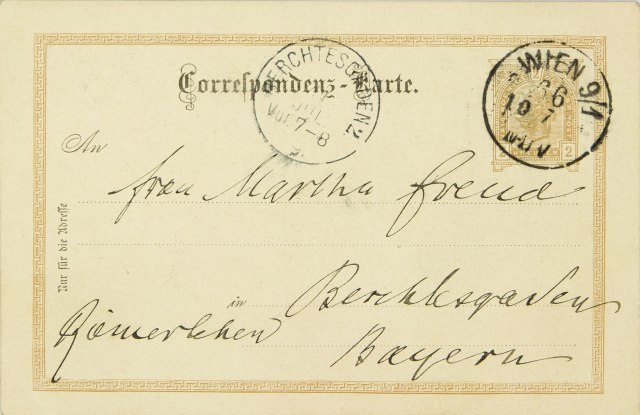 Correspondenz-Karte.
BERCHTESGADEN 2
JUL
Vor. 7-8
WIEN 9/1
26
7
2
2
An
Frau Martha Freud
Nur für die Adresse
in Berchtesgaden
Bayern